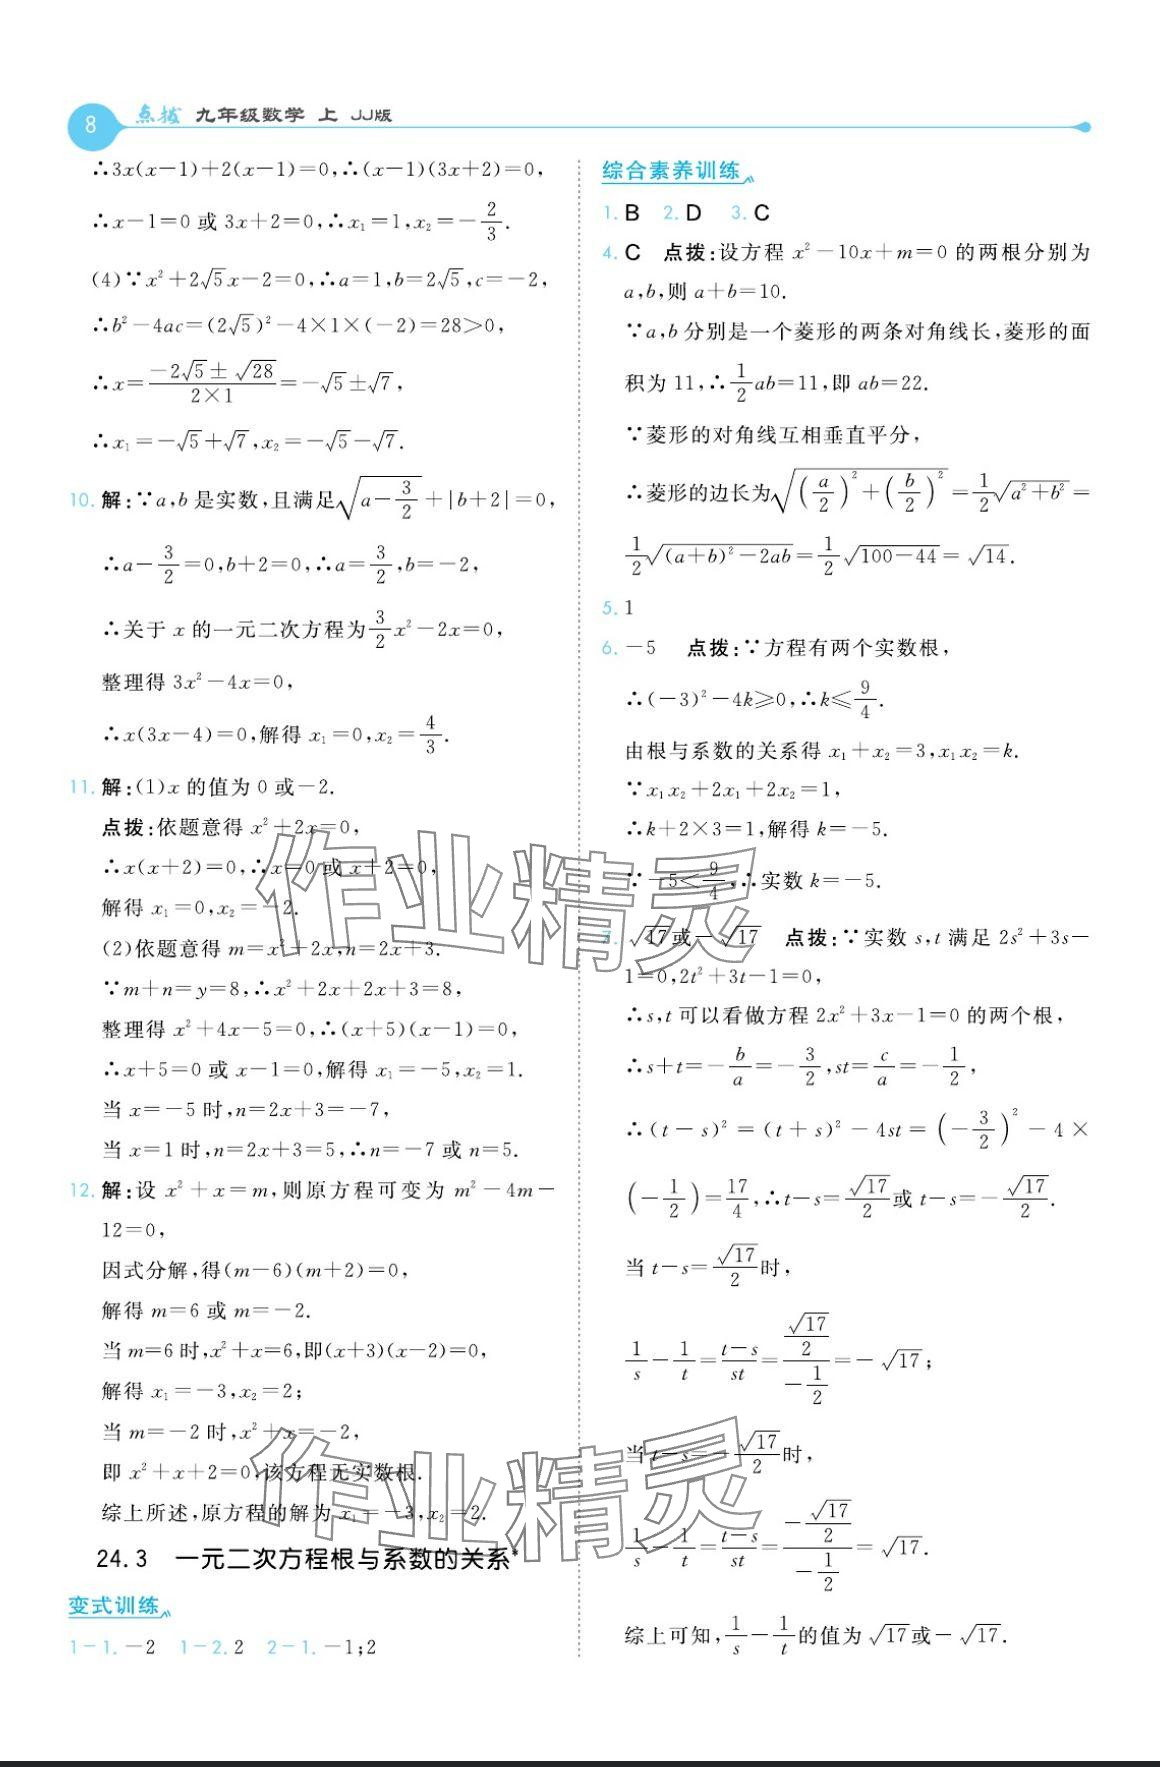 8 点拨 九年级数学 上 JJ版
∴3x(x−1)+2(x−1)=0,∴(x−1)(3x+2)=0,
∴x−1=0 或 3x+2=0,∴x₁=1,x₂=−2/3.
(4)∵x²+2√5x−2=0,∴a=1,b=2√5,c=−2,
∴b²−4ac=(2√5)²−4×1×(−2)=28>0,
∴x=(−2√5±√28)/(2×1)=−√5±√7,
∴x₁=−√5+√7,x₂=−√5−√7.
10. 解:∵a,b 是实数,且满足√(a−3/2)+|b+2|=0,
∴a−3/2=0,b+2=0,∴a=3/2,b=−2,
∴关于 x 的一元二次方程为3/2x²−2x=0,
整理得 3x²−4x=0,
∴x(3x−4)=0,解得 x₁=0,x₂=4/3.
11. 解:(1)x 的值为 0 或−2.
点拨:依题意得 x²+2x=0,
∴x(x+2)=0,∴x=0 或 x+2=0,
解得 x₁=0,x₂=−2.
(2)依题意得 m=x²+2x,n=2x+3.
∵m+n=y=8,∴x²+2x+2x+3=8,
整理得 x²+4x−5=0,∴(x+5)(x−1)=0,
∴x+5=0 或 x−1=0,解得 x₁=−5,x₂=1.
当 x=−5 时,n=2x+3=−7,
当 x=1 时,n=2x+3=5,∴n=−7 或 n=5.
12. 解:设 x²+x=m,则原方程可变为 m²−4m−
12=0,
因式分解,得(m−6)(m+2)=0,
解得 m=6 或 m=−2.
当 m=6 时,x²+x=6,即(x+3)(x−2)=0,
解得 x₁=−3,x₂=2;
当 m=−2 时,x²+x=−2,
即 x²+x+2=0,该方程无实数根.
综上所述,原方程的解为 x₁=−3,x₂=2.
24.3 一元二次方程根与系数的关系*
变式训练
1−1. −2 1−2. 2 2−1. −1;2
综合素养训练
1. B 2. D 3. C
4. C 点拨:设方程 x²−10x+m=0 的两根分别为
a,b,则 a+b=10.
∵a,b 分别是一个菱形的两条对角线长,菱形的面
积为 11,∴1/2ab=11,即 ab=22.
∵菱形的对角线互相垂直平分,
∴菱形的边长为√((a/2)²+(b/2)²)=1/2√(a²+b²)=
1/2√((a+b)²−2ab)=1/2√(100−44)=√14.
5. 1
6. −5 点拨:∵方程有两个实数根,
∴(−3)²−4k≥0,∴k≤9/4.
由根与系数的关系得 x₁+x₂=3,x₁x₂=k.
∵x₁x₂+2x₁+2x₂=1,
∴k+2×3=1,解得 k=−5.
∵−5<9/4,∴实数 k=−5.
7. √17或−√17 点拨:∵实数 s,t 满足 2s²+3s−
1=0,2t²+3t−1=0,
∴s,t 可以看做方程 2x²+3x−1=0 的两个根,
∴s+t=−b/a=−3/2,st=c/a=−1/2,
∴(t−s)²=(t+s)²−4st=(−3/2)²−4×
(−1/2)=17/4,∴t−s=√17/2或 t−s=−√17/2.
当 t−s=√17/2时,
1/s−1/t=(t−s)/st=(√17/2)/(−1/2)=−√17;
当 t−s=−√17/2时,
1/s−1/t=(t−s)/st=(−√17/2)/(−1/2)=√17.
综上可知,1/s−1/t的值为√17或−√17.
作业精灵
作业精灵